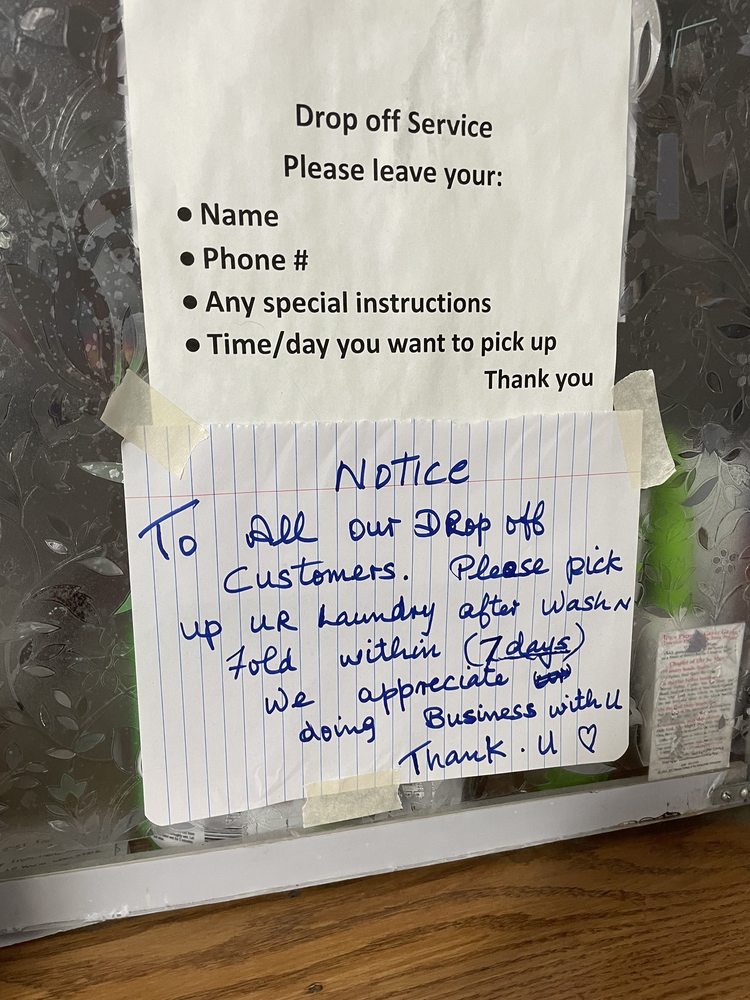 Drop off Service
Please leave your:
● Name
● Phone #
● Any special instructions
● Time/day you want to pick up
Thank you
NOTICE
To All our DRop off
Customers. Please pick
up UR Laundry after Wash N
Fold within (7 days)
We appreciate
doing Business with U
Thank. U ♡